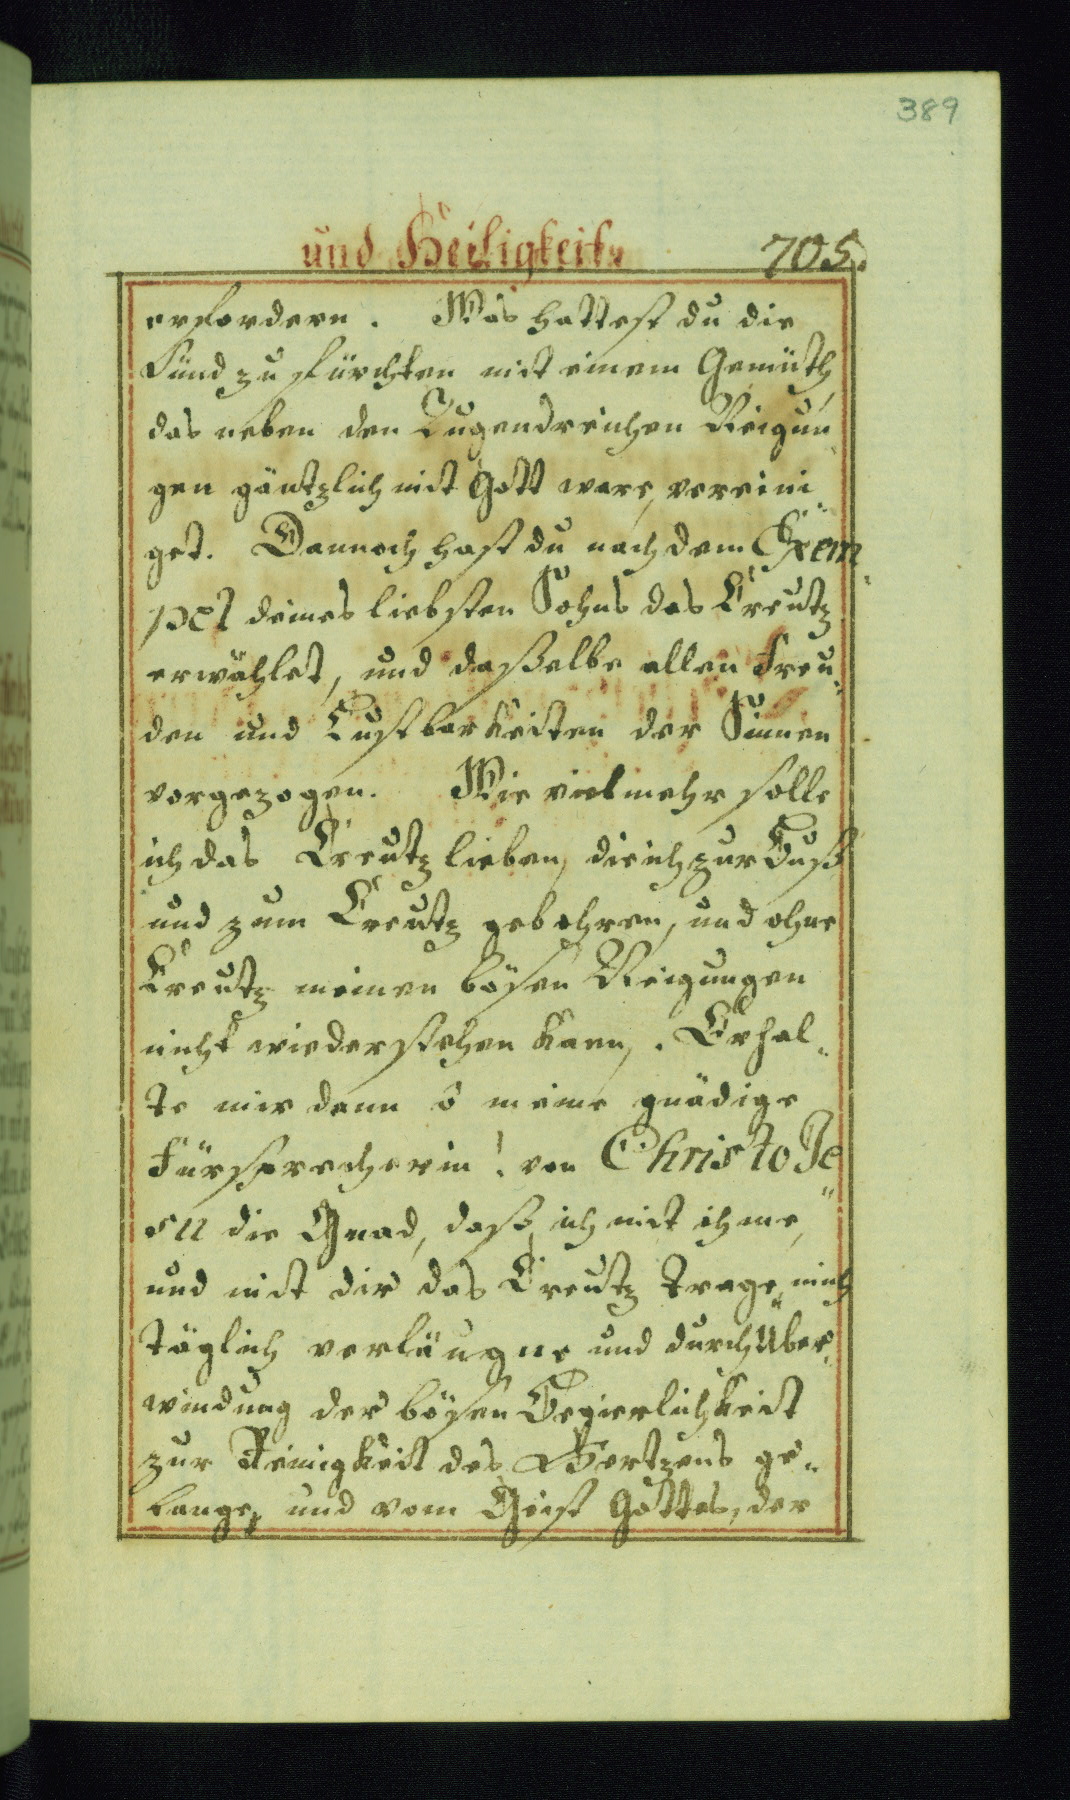 389
und Heiligkeit. 705.
erfordern. Was hattest du die
Sünd zu fürchten mit einem Gemüth,
das neben den Tugendreichen Neigun¬
gen gäntzlich mit Gott ware, vereini¬
get. Dannoch hast du nach dem Exem¬
pel deines liebsten Sohns das Creutz
erwählet, und dasselbe allen Freu¬
den und Lustbarkeiten der Sinnen
vorgezogen. Wie viel mehr solle
ich das Creutz lieben, die ich zur Buß
und zum Creutz gebohren, und ohne
Creutz meinen bösen Neigungen
nicht wiederstehen kann,. Erhal¬
te mir dann ô meine gnädige
Fürsprecherin! von Christo Je¬
su die Gnad, daß, ich mit ihme,
und mit dir das Creutz trage, mich
täglich verläugne und durch Über¬
windung der bösen Begierlichkeit
zur Reinigkeit des Hertzens ge¬
lange, und vom Geist Gottes, der